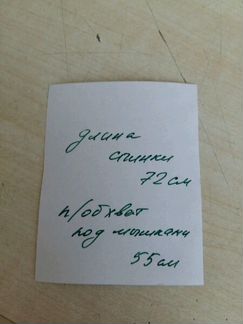 длина
спинки
72 см
п/обхват
под мышками
55 см